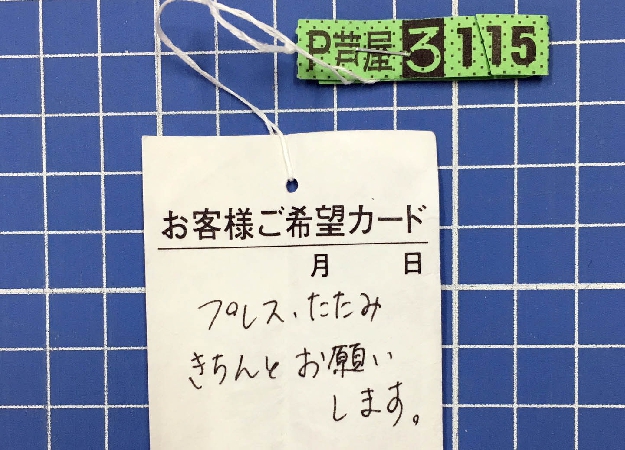 P芦屋 3 115
お客様ご希望カード
月 日
プレス、たたみ
きちんとお願い
します。